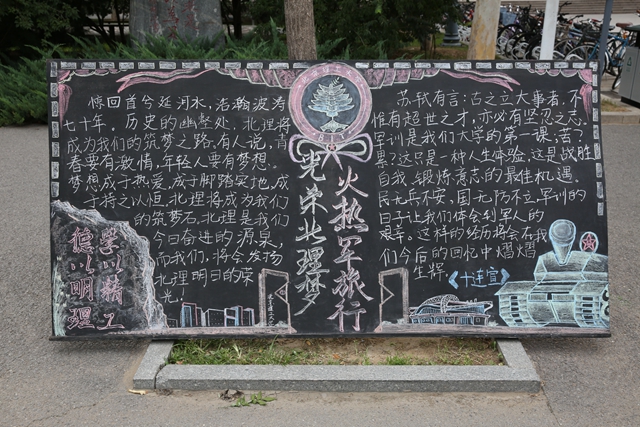 惊回首兮延河水,浩瀚波涛
七十年。历史的幽整处,北理将
成为我们的筑梦之路。有人说,青
春要有激情,年轻人要有梦想。
梦想成于热爱,成于脚踏实地,成
于持之以恒。北理将成为我们
的筑梦石,北理是我们
今日奋进的源泉,
而我们,将会发扬
北理明日的荣
光!
德以明理
学以精工
光荣北理梦
火热军旅行
苏轼有言:古之立大事者,不
惟有超世之才,亦必有坚忍之志。
军训是我们大学的第一课;苦?
累?这只是一种人生体验,这是战胜
自我,锻炼意志的最佳机遇。
民无兵不安,国无防不立军训的
日子让我们体会到军人的
艰辛。这样的经历将会在我
们今后的回忆中熠熠
生辉。
《十连宣》